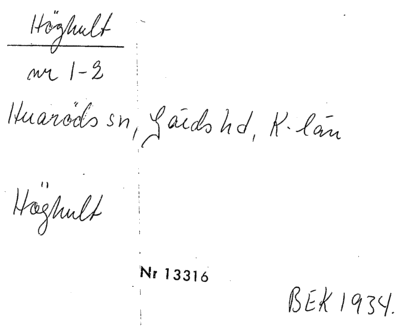 Höghult
nr 1-2
Huaröds sn, Gärds hd, K-län
Höghult
Nr 13316
BEK 1934.